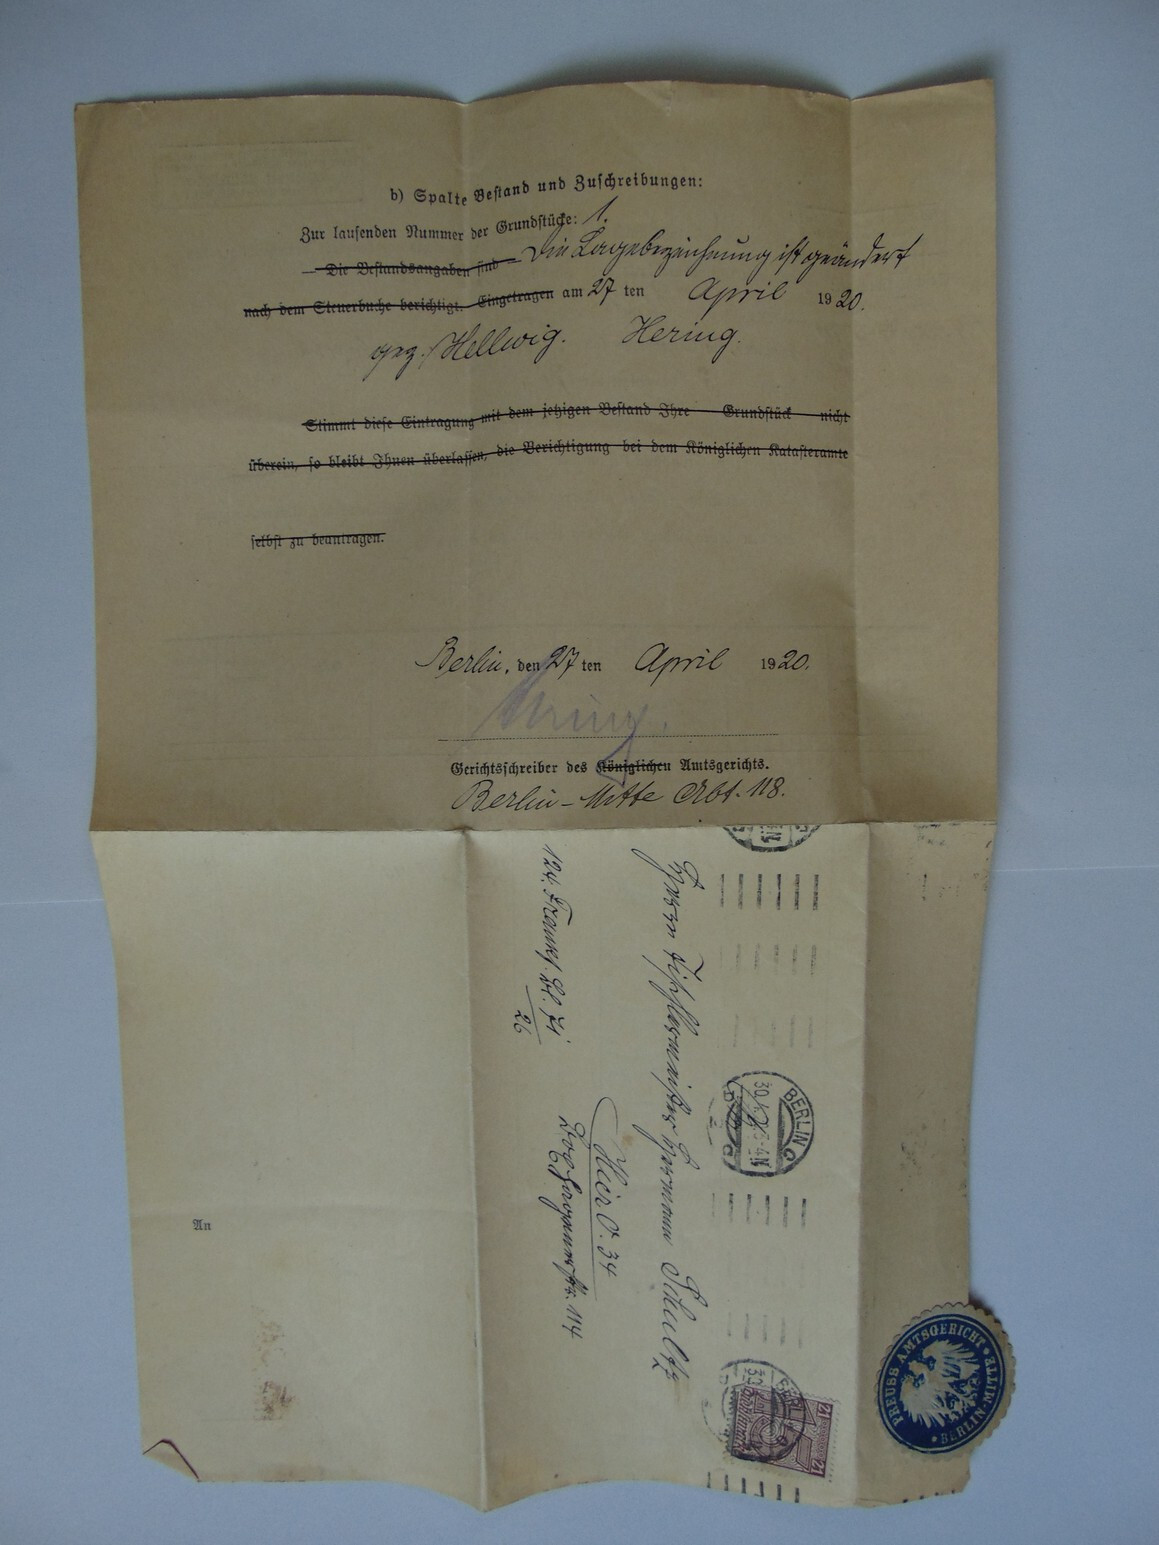 b) Spalte Bestand und Zuschreibungen:
Zur laufenden Nummer der Grundstücke: 1.
— Die Bestandsangaben sind — Die Lagebezeichnung ist geändert
nach dem Steuerbuche berichtigt. Eingetragen am 27 ten April 1920.
gez. Hellwig. Hering.
Stimmt diese Eintragung mit dem jetzigen Bestand Ihre Grundstück nicht
überein, so bleibt Ihnen überlassen, die Berichtigung bei dem Königlichen Katasteramte
selbst zu beantragen.
Berlin, den 27 ten April 1920.
Hering.
Gerichtsschreiber des Königlichen Amtsgerichts.
Berlin-Mitte Abt. 118.
Herrn Tischlermeister Hermann Schultz
Hier O. 34
114
124. Frankf. Bl. 71
26
BERLIN C
An
PREUSS AMTSGERICHT * BERLIN-MITTE *